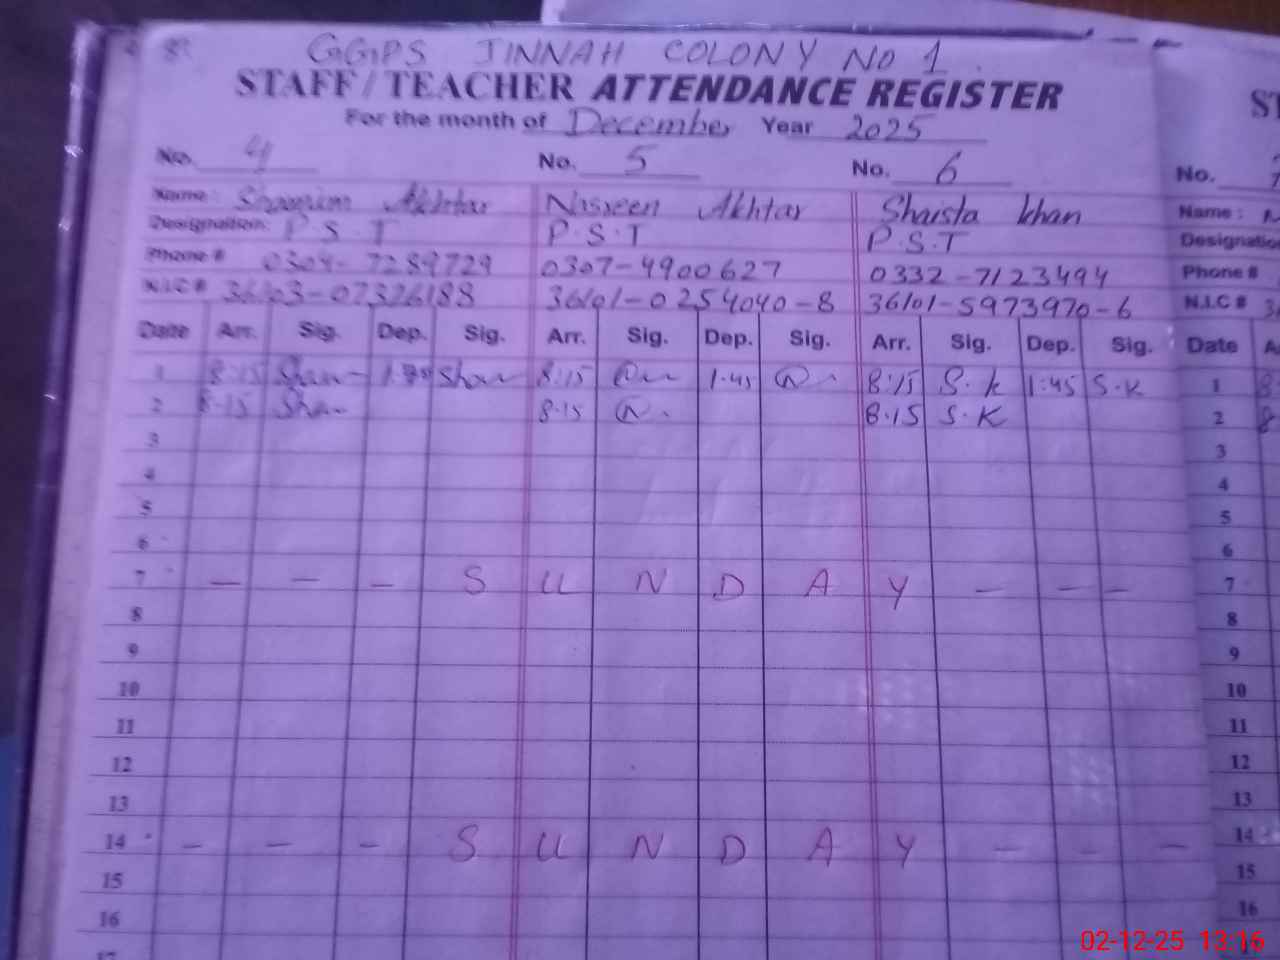 GGPS JINNAH COLONY No 1
STAFF / TEACHER ATTENDANCE REGISTER
For the month of December Year 2025
No. 4 No. 5 No. 6 No.
Name: Shamim Akhtar Nasreen Akhtar Shaista Khan Name:
Designation: P.S.T P.S.T P.S.T
Phone # 0304-7289729 0307-4900627 0332-7123494 Phone #
N.I.C # 36103-07326188 36101-0254040-8 36101-5973970-6 N.I.C #
Date Arr. Sig. Dep. Sig. Arr. Sig. Dep. Sig. Arr. Sig. Dep. Sig. Date
1 8:15 Sham 8:15 1:45 8:15 S.K 1:45 S.K 1
2 8:15 Sham 8:15 8:15 S.K 2
3 3
4 4
5 5
6 6
7 - - - S U N D A Y - - - 7
8 8
9 9
10 10
11 11
12 12
13 13
14 - - - S U N D A Y - - - 14
15 15
16 16
02-12-25 13:16